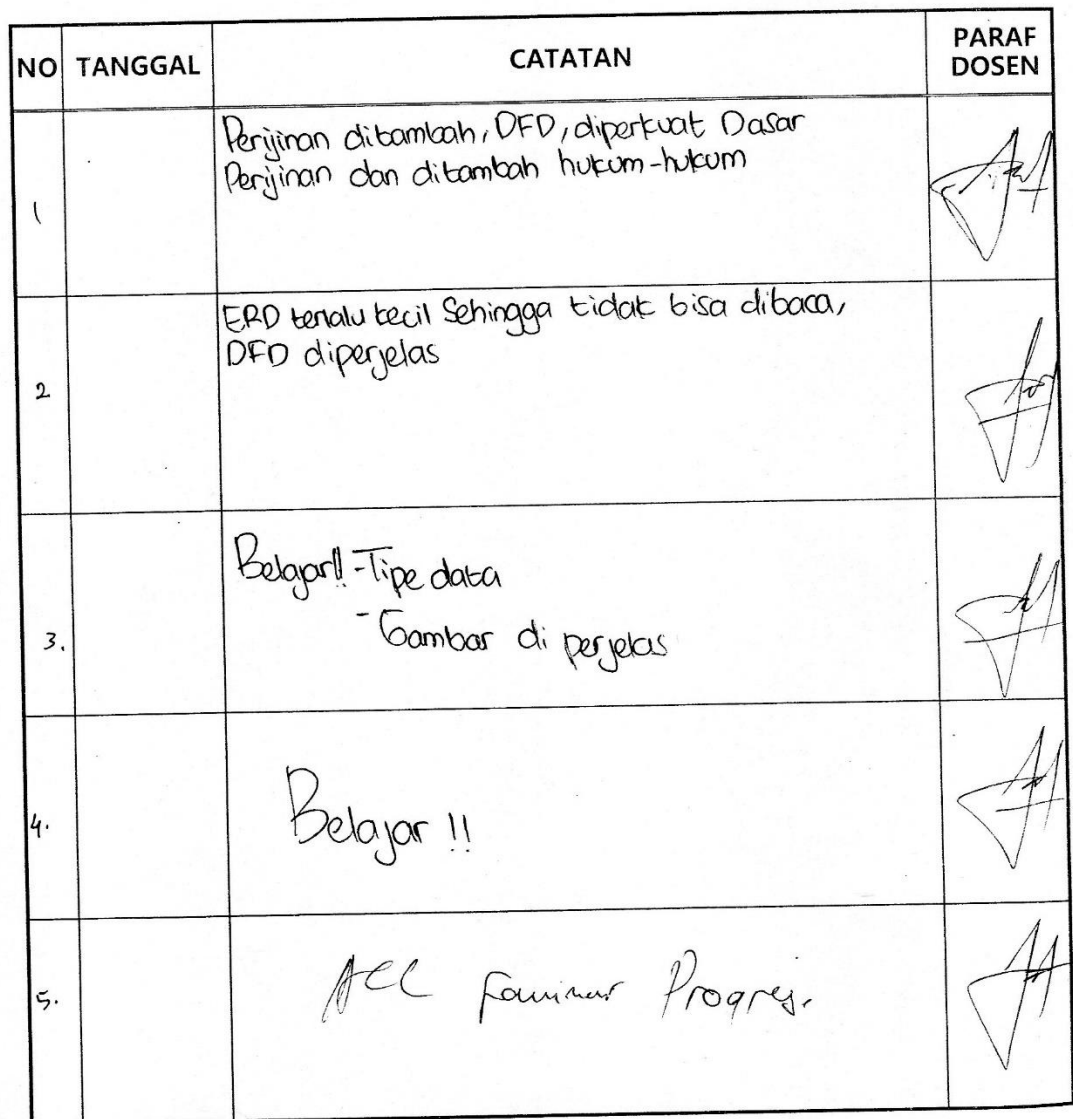 NO TANGGAL CATATAN PARAF DOSEN
1 Perijinan ditambah, DFD, diperkuat Dasar
Perijinan dan ditambah hukum-hukum
2 ERD terlalu kecil Sehingga tidak bisa dibaca,
DFD diperjelas
3. Belajar!! - Tipe data
- Gambar di perjelas
4. Belajar !!
5. ACC Seminar Progres.